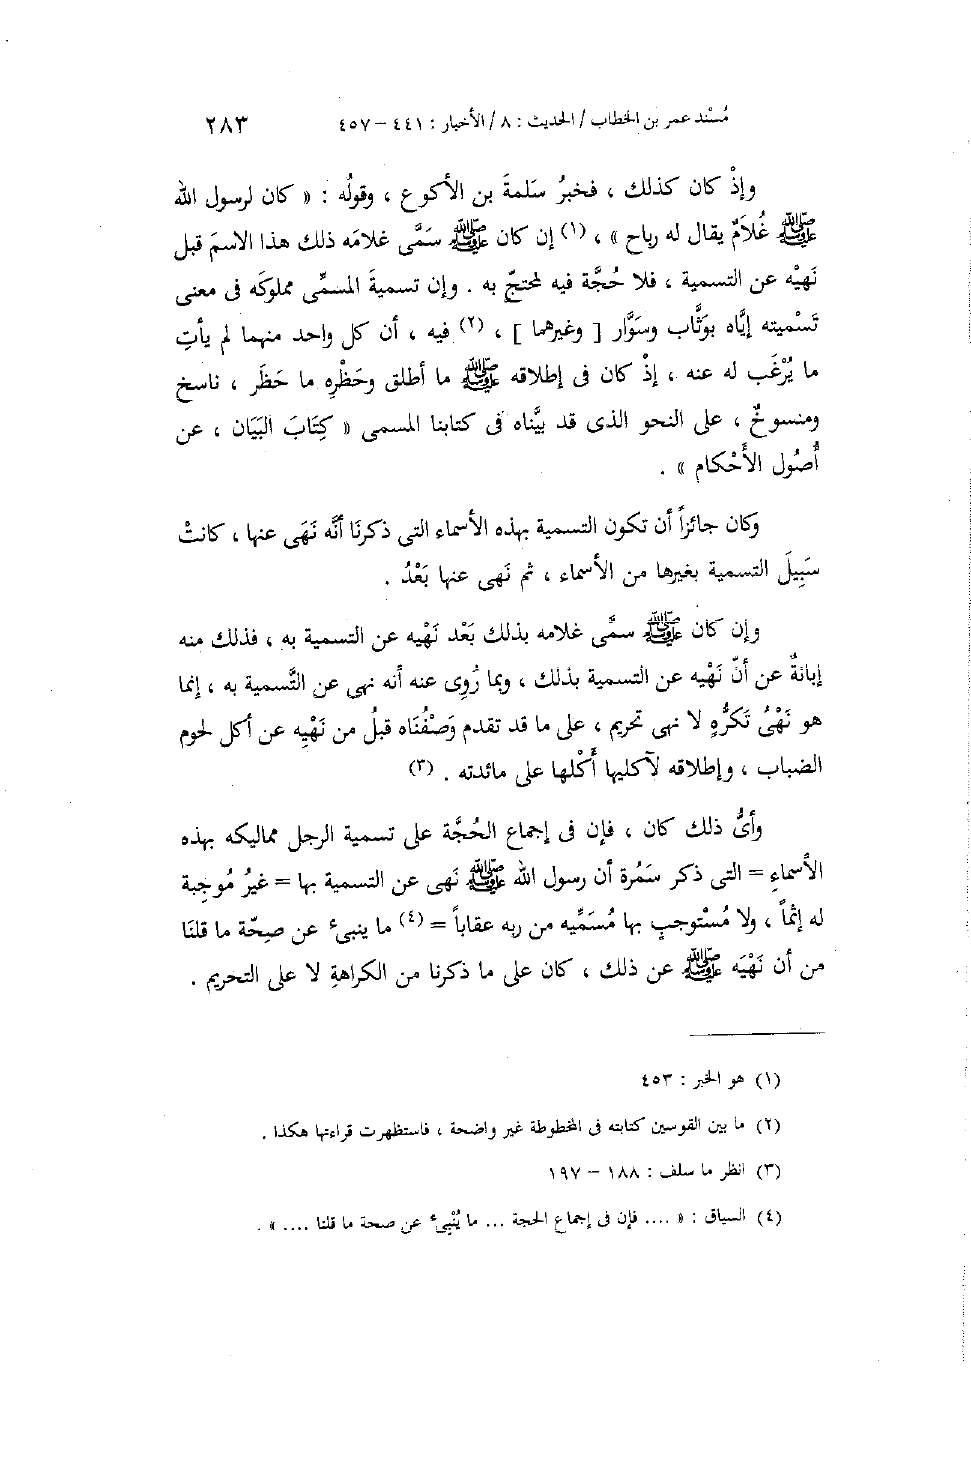 مُسْند عمر بن الخطاب / الحديث : ٨ / الأخبار : ٤٤١ – ٤٥٧ ٢٨٣
وإذْ كان كذلك ، فخبرُ سَلمةَ بن الأكوع ، وقولُه : « كان لرسول الله
ﷺ غُلاَمٌ يقال له رباح » ، (١) إن كان ﷺ سَمَّى غلامَه ذلك هذا الاسمَ قبل
نَهيْه عن التسمية ، فلا حُجَّة فيه لمحتجّ به . وإن تسميةَ المسمِّى مملوكَه فى معنى
تَسْميته إيَّاه بوَثَّاب وسَوَّار [ وغيرهما ] ، (٢) فيه ، أن كل واحد منهما لم يأتِ
ما يُرْغَب له عنه ، إذْ كان فى إطلاقه ﷺ ما أطلق وحَظْرِه ما حَظَر ، ناسخ
ومنسوخٌ ، على النحو الذى قد بيَّناه فى كتابنا المسمى « كِتَابَ البَيَان ، عن
أصُول الأَحْكام » .
وكان جائزاً أن تكون التسمية بهذه الأسماء التى ذكرنَا أنَّه نَهَى عنها ، كانتْ
سَبِيلَ التسمية بغيرها من الأسماء ، ثم نَهى عنها بَعْدُ .
وإن كان ﷺ سمَّى غلامه بذلك بَعْد نَهْيه عن التسمية به ، فذلك منه
إبانةٌ عن أنّ نَهْيه عن التسمية بذلك ، وبما رُوِى عنه أنه نهى عن التَّسمية به ، إنما
هو نَهْىُ تَكَرُّهٍ لا نهى تحريم ، على ما قد تقدم وَصْفُنَاه قبلُ من نَهْيِه عن أكل لحوم
الضباب ، وإطلاقه لآكليها أَكْلها على مائدته . (٣)
وأىُّ ذلك كان ، فإن فى إجماع الحُجَّة على تسمية الرجل مماليكه بهذه
الأسماءِ = التى ذكر سَمُرة أن رسول الله ﷺ نَهى عن التسمية بها = غيرُ مُوجِبة
له إثماً ، ولا مُسْتوجبٍ بها مُسَمِّيه من ربه عقاباً = (٤) ما ينبىء عن صِحّة ما قلنَا
من أن نَهْيَه ﷺ عن ذلك ، كان على ما ذكرنا من الكراهةِ لا على التحريم .
(١) هو الخبر : ٤٥٣
(٢) ما بين القوسين كتابته فى المخطوطة غير واضحة ، فاستظهرت قراءتها هكذا .
(٣) انظر ما سلف : ١٨٨ – ١٩٧
(٤) السياق : « .... فإن فى إجماع الحجة ... ما يُنْبِىء عن صحة ما قلنا .... » .